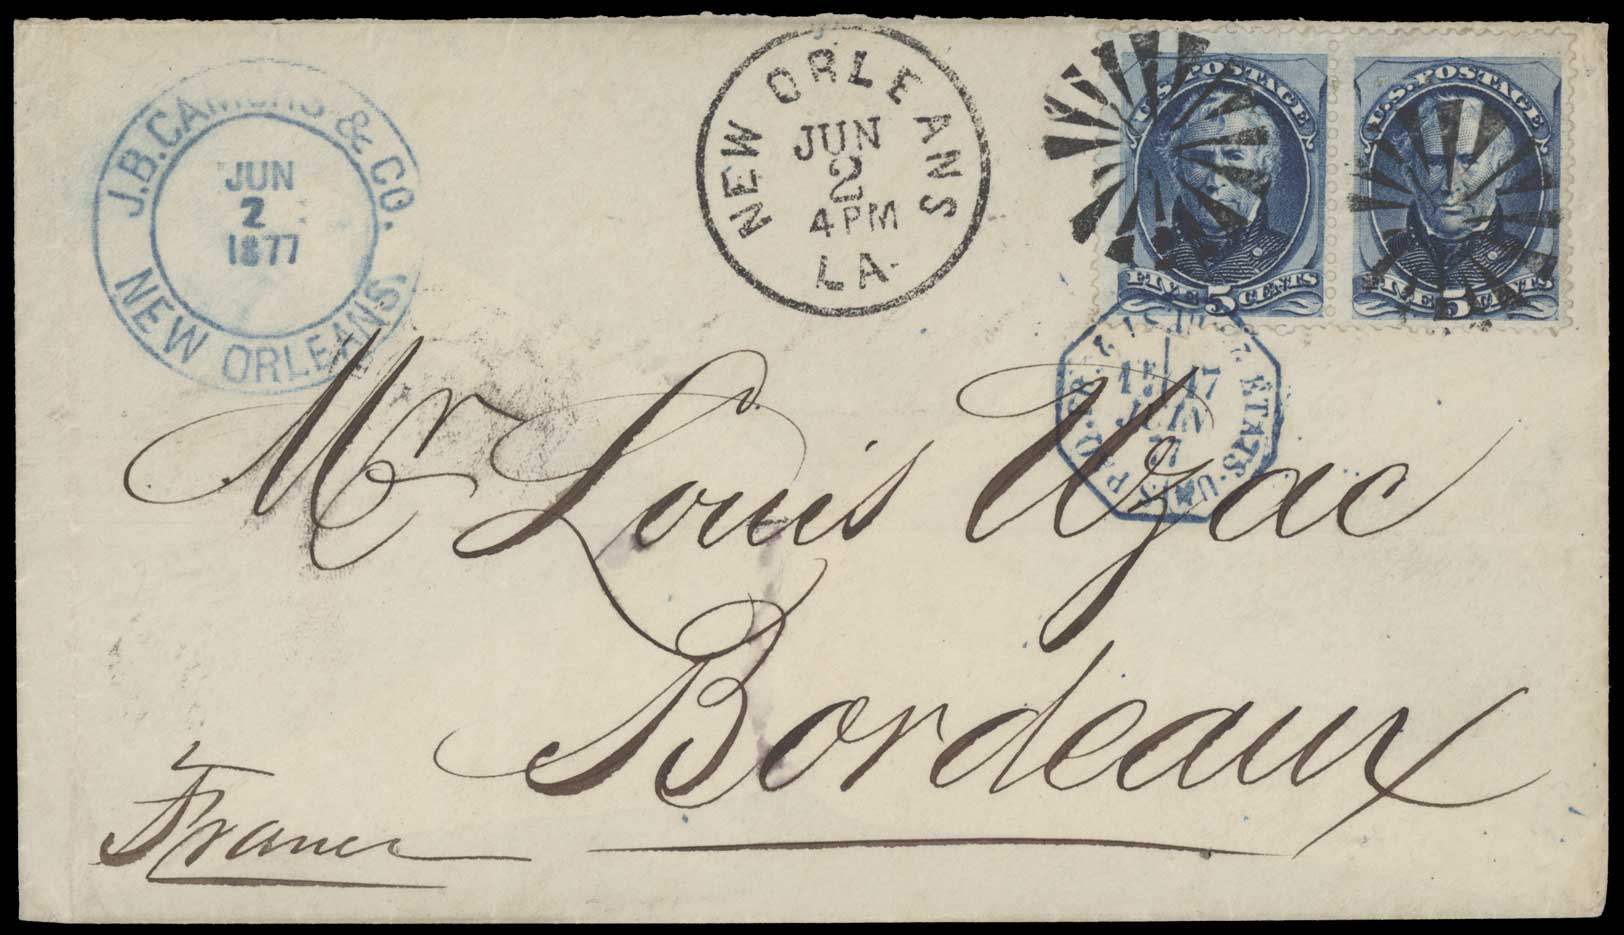 J.B. CAMORS & CO.
JUN
2
1877
NEW ORLEANS.
NEW ORLEANS
JUN
2
4 PM
LA.
U.S. POSTAGE
FIVE 5 CENTS
U.S. POSTAGE
FIVE 5 CENTS
ÉTATS-UNIS
17
JUIN
77
Mr Louis Uzac
Bordeaux
France